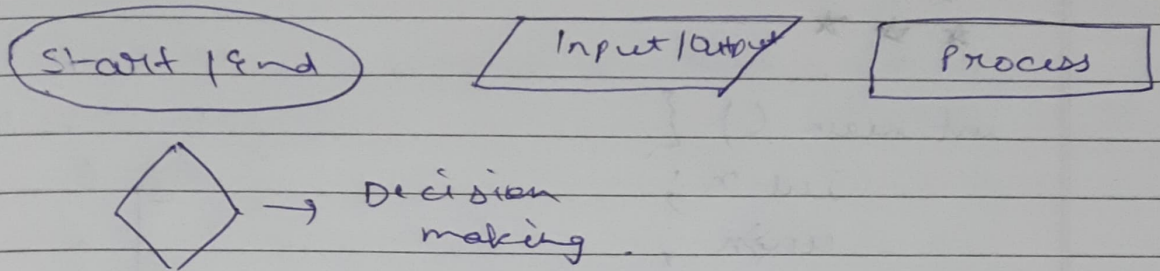 Start / End
Input / Output
Process
→ Decision
making.